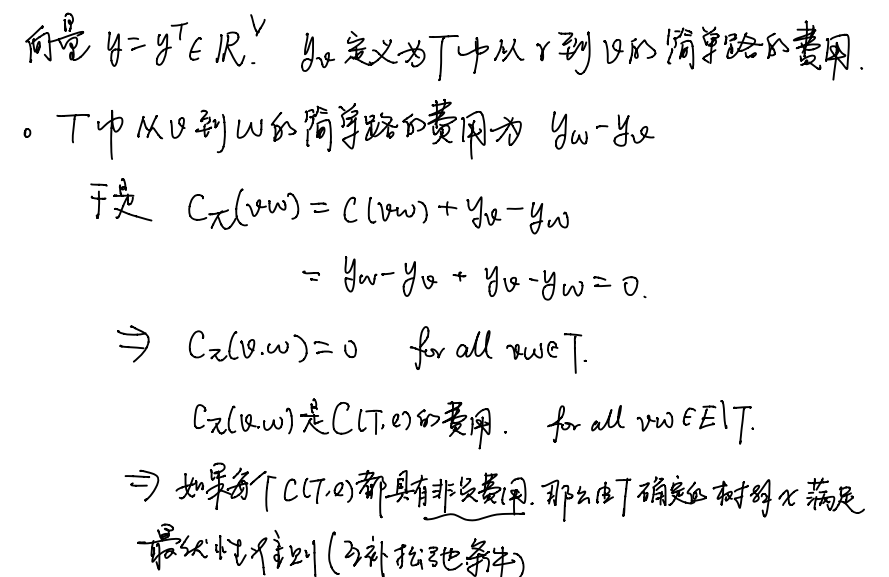 向量 y=y^T∈ℝ^V. y_v 定义为T中从r到v的简单路的费用.
。T中从v到w的简单路的费用为 y_w-y_v
于是 C_π(vw)=C(vw)+y_v-y_w
= y_w-y_v+y_v-y_w=0.
⇒ C_π(v.w)=0 for all vw∈T.
C_π(v.w)是C(T,e)的费用. for all vw∈E\T.
⇒ 如果每个C(T,e)都具有非负费用.那么由T确定的树解x满足
最优性准则(互补松弛条件)